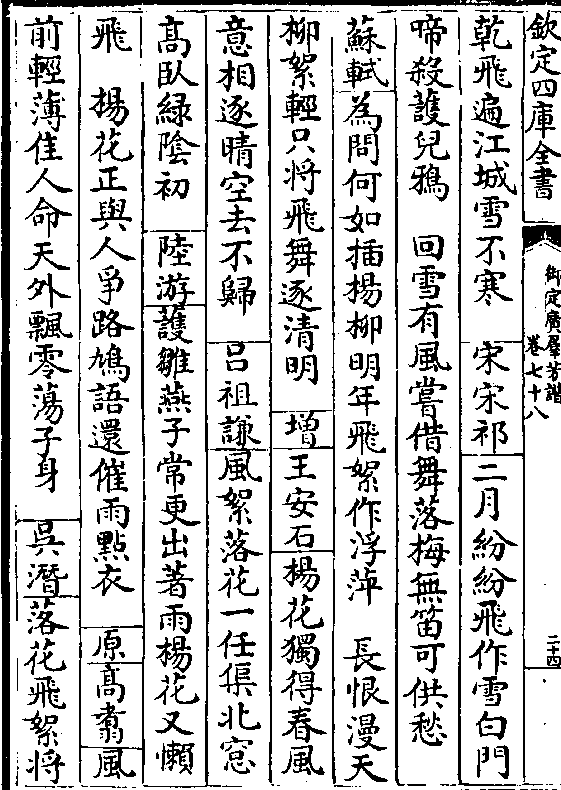 欽定四庫全書
御定廣羣芳譜
卷七十八
二十四
乾飛遍江城雪不寒　宋宋祁二月紛紛飛作雪白門
啼殺䕶兒鴉　回雪有風嘗借舞落梅無笛可供愁
蘇軾為問何如插楊柳明年飛絮作浮萍　長恨漫天
柳絮輕只將飛舞逐清明　增王安石楊花獨得春風
意相逐晴空去不歸　吕祖謙風絮落花一任渠北窓
髙臥緑陰初　陸游䕶雛燕子常更出著雨楊花又懶
飛　楊花正與人爭路鳩語還催雨㸃衣　原髙翥風
前輕薄佳人命天外飄零蕩子身　吳潛落花飛絮將